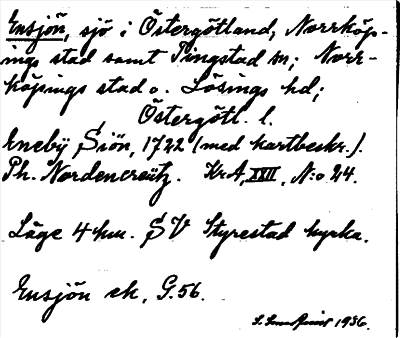 Ensjön, sjö i Östergötland, Norrköp-
ings stad samt Tingstad sn; Norr-
köpings stad o. Lösings hd;
Östergötl. l.
Eneby Siön, 1722 (med kartbeskr.).
Ph. Nordencreutz. KrA, XXII, N:o 24.
Läge 4 km. SV Styrestad kyrka.
Ensjön ek, G.56.
1936.